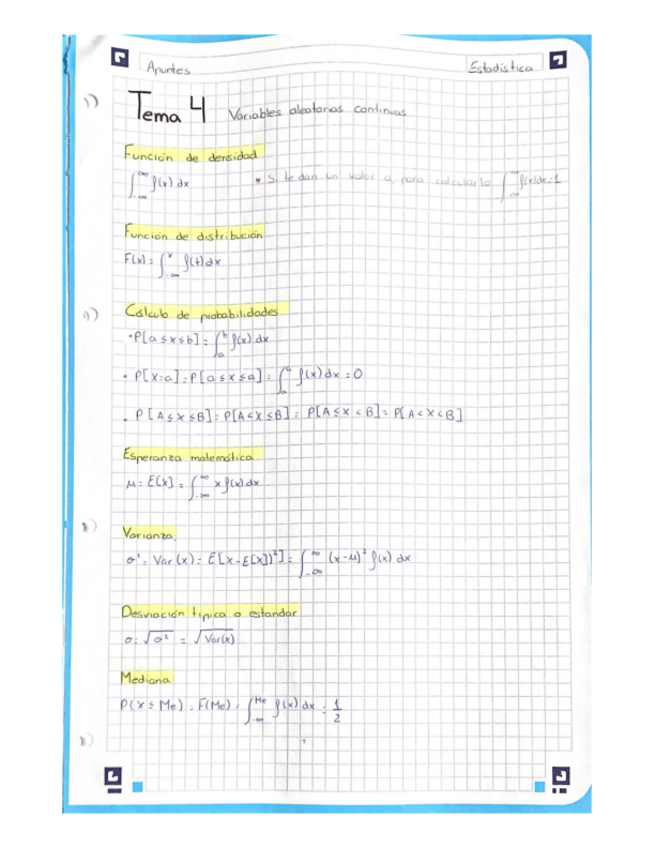 Apuntes Estadística
Tema 4 Variables aleatorias continuas
Función de densidad
∫_{-∞}^{∞} f(x) dx * Si te dan un valor a, para calcularlo ∫_{-∞}^{∞} f(x)dx=1
Función de distribución
F(x) = ∫_{-∞}^{x} f(t)dx
Cálculo de probabilidades
• P[a ≤ x ≤ b] = ∫_{a}^{b} f(x) dx
• P[X=a] = P[a ≤ x ≤ a] = ∫_{a}^{a} f(x) dx = 0
• P[A ≤ X ≤ B] = P[A < X ≤ B] = P[A ≤ X < B] = P[A < X < B]
Esperanza matemática
μ = E[x] = ∫_{-∞}^{∞} x f(x) dx
Varianza
σ² = Var(x) = E[x-E[x])²] = ∫_{-∞}^{∞} (x-μ)² f(x) dx
Desviación típica o estandar
σ = √σ² = √Var(x)
Mediana
P(X ≤ Me) = F(Me) = ∫_{-∞}^{Me} f(x) dx = 1/2